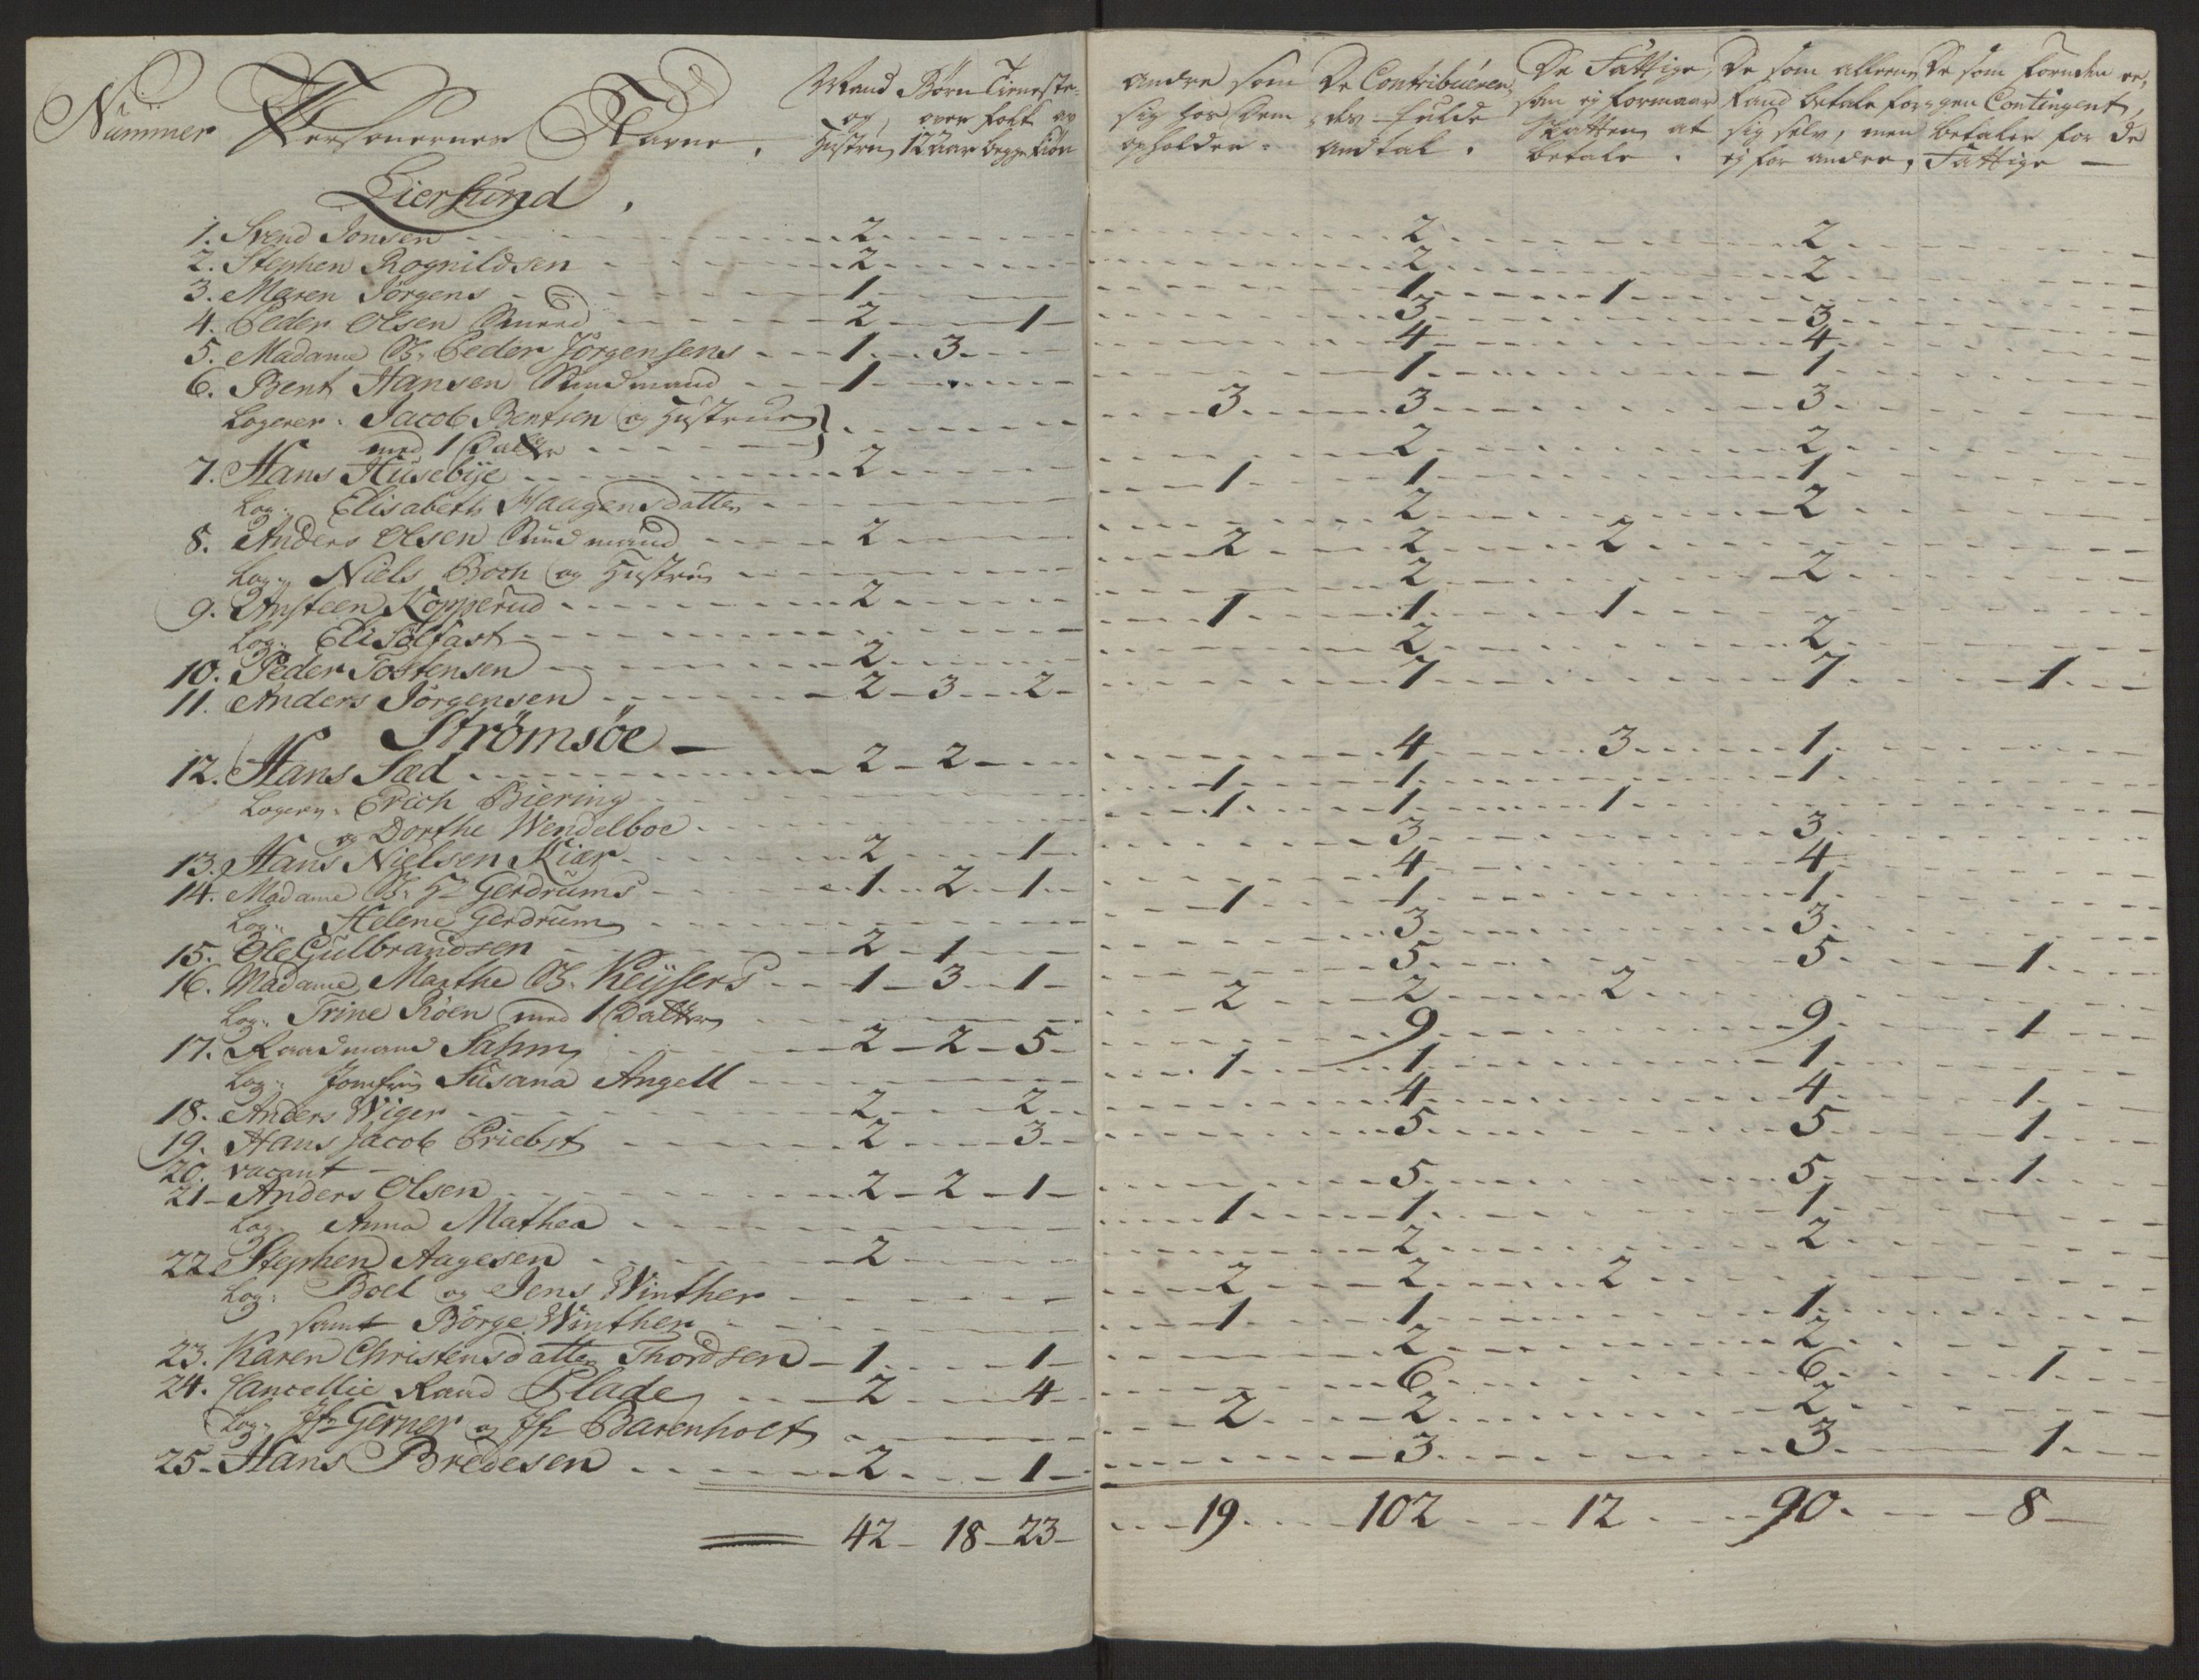 Nummer Personernes Navne. Mand og Hustru Børn over 12 Aar Tieneste-folk av begge Kiøn Andre som sig hos dem opholder. De Contribueren-des fulde Andtal. De Fattige, som ej formaar Skatten at betale. De som alleene kand betale for sig selv, men ej for andre, De som foruden egen Contingent, betaler for de Fattige —
Liersund,
1. Svend Jonsen 2 2 2
2. Stephen Rognildsen 2 2 2
3. Maren Jörgens 1 1 1
4. Peder Olsen 2 1 3 3
5. Madame Peder Jörgensens 1 3 4 4
6. Bent Hansen Sundmand 1 1 1
Logerer. Jacob Bentsen og Hustrue 3 3 3
med 1 Datter
7. Hans Husebÿe 2 2 2
Log: Elisabeth Haagensdatter 1 1 1
8. Anders Olsen Sundmand 2 2 2
Log: Niels Boch og Hustru 2 2 2
9. Ansteen Kopperud 2 2 2
Log: Eli Solfast 1 1 1
10. Peder Tostensen 2 2 2
11. Anders Jörgensen 2 3 2 7 7 1
Strömsöe
12. Hans Sæd 2 2 4 3 1
Logern: Erich Biering 1 1 1
og Dorthe Wendelboe 1 1 1
13. Hans Nielsen Kiær 2 1 3 3
14. Madame Gerdrums 1 2 1 4 4
Log: Helene Gerdrum 1 1 1
15. Ole Gulbrandsen 2 1 3 3
16. Madame Marthe Keÿsers 1 3 1 5 5 1
Log: Trine Röen med 1 Datter 2 2 2
17. Raadmand Sahm 2 2 5 9 9 1
Log: Jomfru Susana Angell 1 1 1
18. Anders Wiger 2 2 4 4 1
19. Hans Jacob Priebst 2 3 5 5 1
20. vacant
21 Anders Olsen 2 2 1 5 5 1
Log: Anna Mathea 1 1 1
22 Stephen Aagesen 2 2 2
Log: Boel og Jens Winther 2 2 2
samt Börge Winther 1 1 1
23. Karen Christensdatter Thordsen 1 1 2 2
24. Cancellie Raad Plade 2 4 6 6 1
Log: Jfr Gerner og Jfr Barenholt 2 2 2
25. Hans Bredesen 2 1 3 3 1
42 18 23 19 102 12 90 8